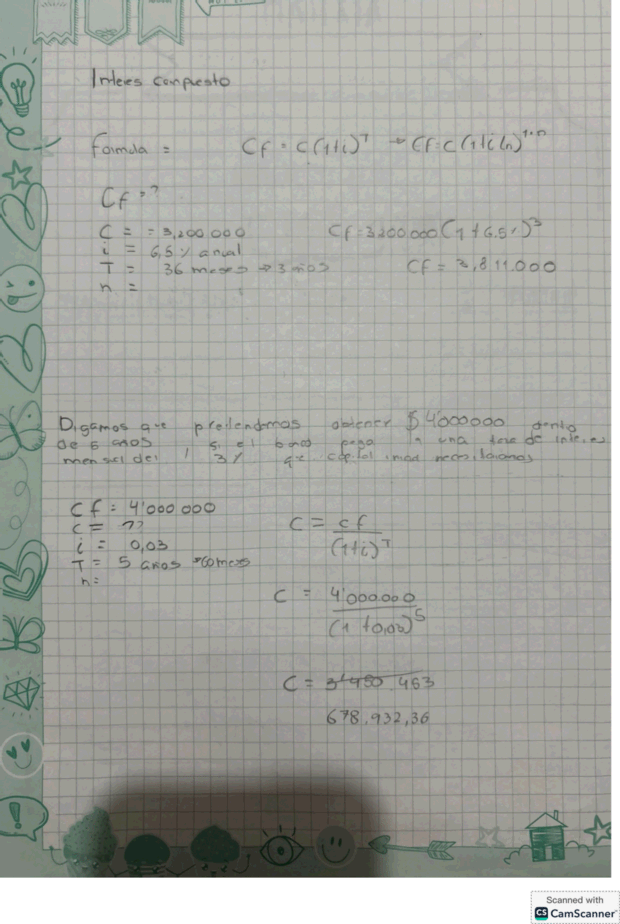 Interes compuesto
formula = Cf = C(1+i)^T → Cf = C(1+i(n)^1·n
Cf = ?
C = = 3,200 000
Cf = 3200 000 (1 + 6.5%)^3
i = 6,5% anual
T = 36 meses → 3 años
Cf = 3,811.000
n =
Digamos que pretendemos obtener $ 4'000000 dentro
de 5 años si el banco paga una tasa de interes
mensual del 3% que capital necesitamos
Cf = 4'000 000
C = ??
C = cf
(1+i)^T
i = 0,03
T = 5 años
n =
C = 4'000.000
(1+0,03)^5
C = 3'450.463
678.932,36
Scanned with
CS CamScanner